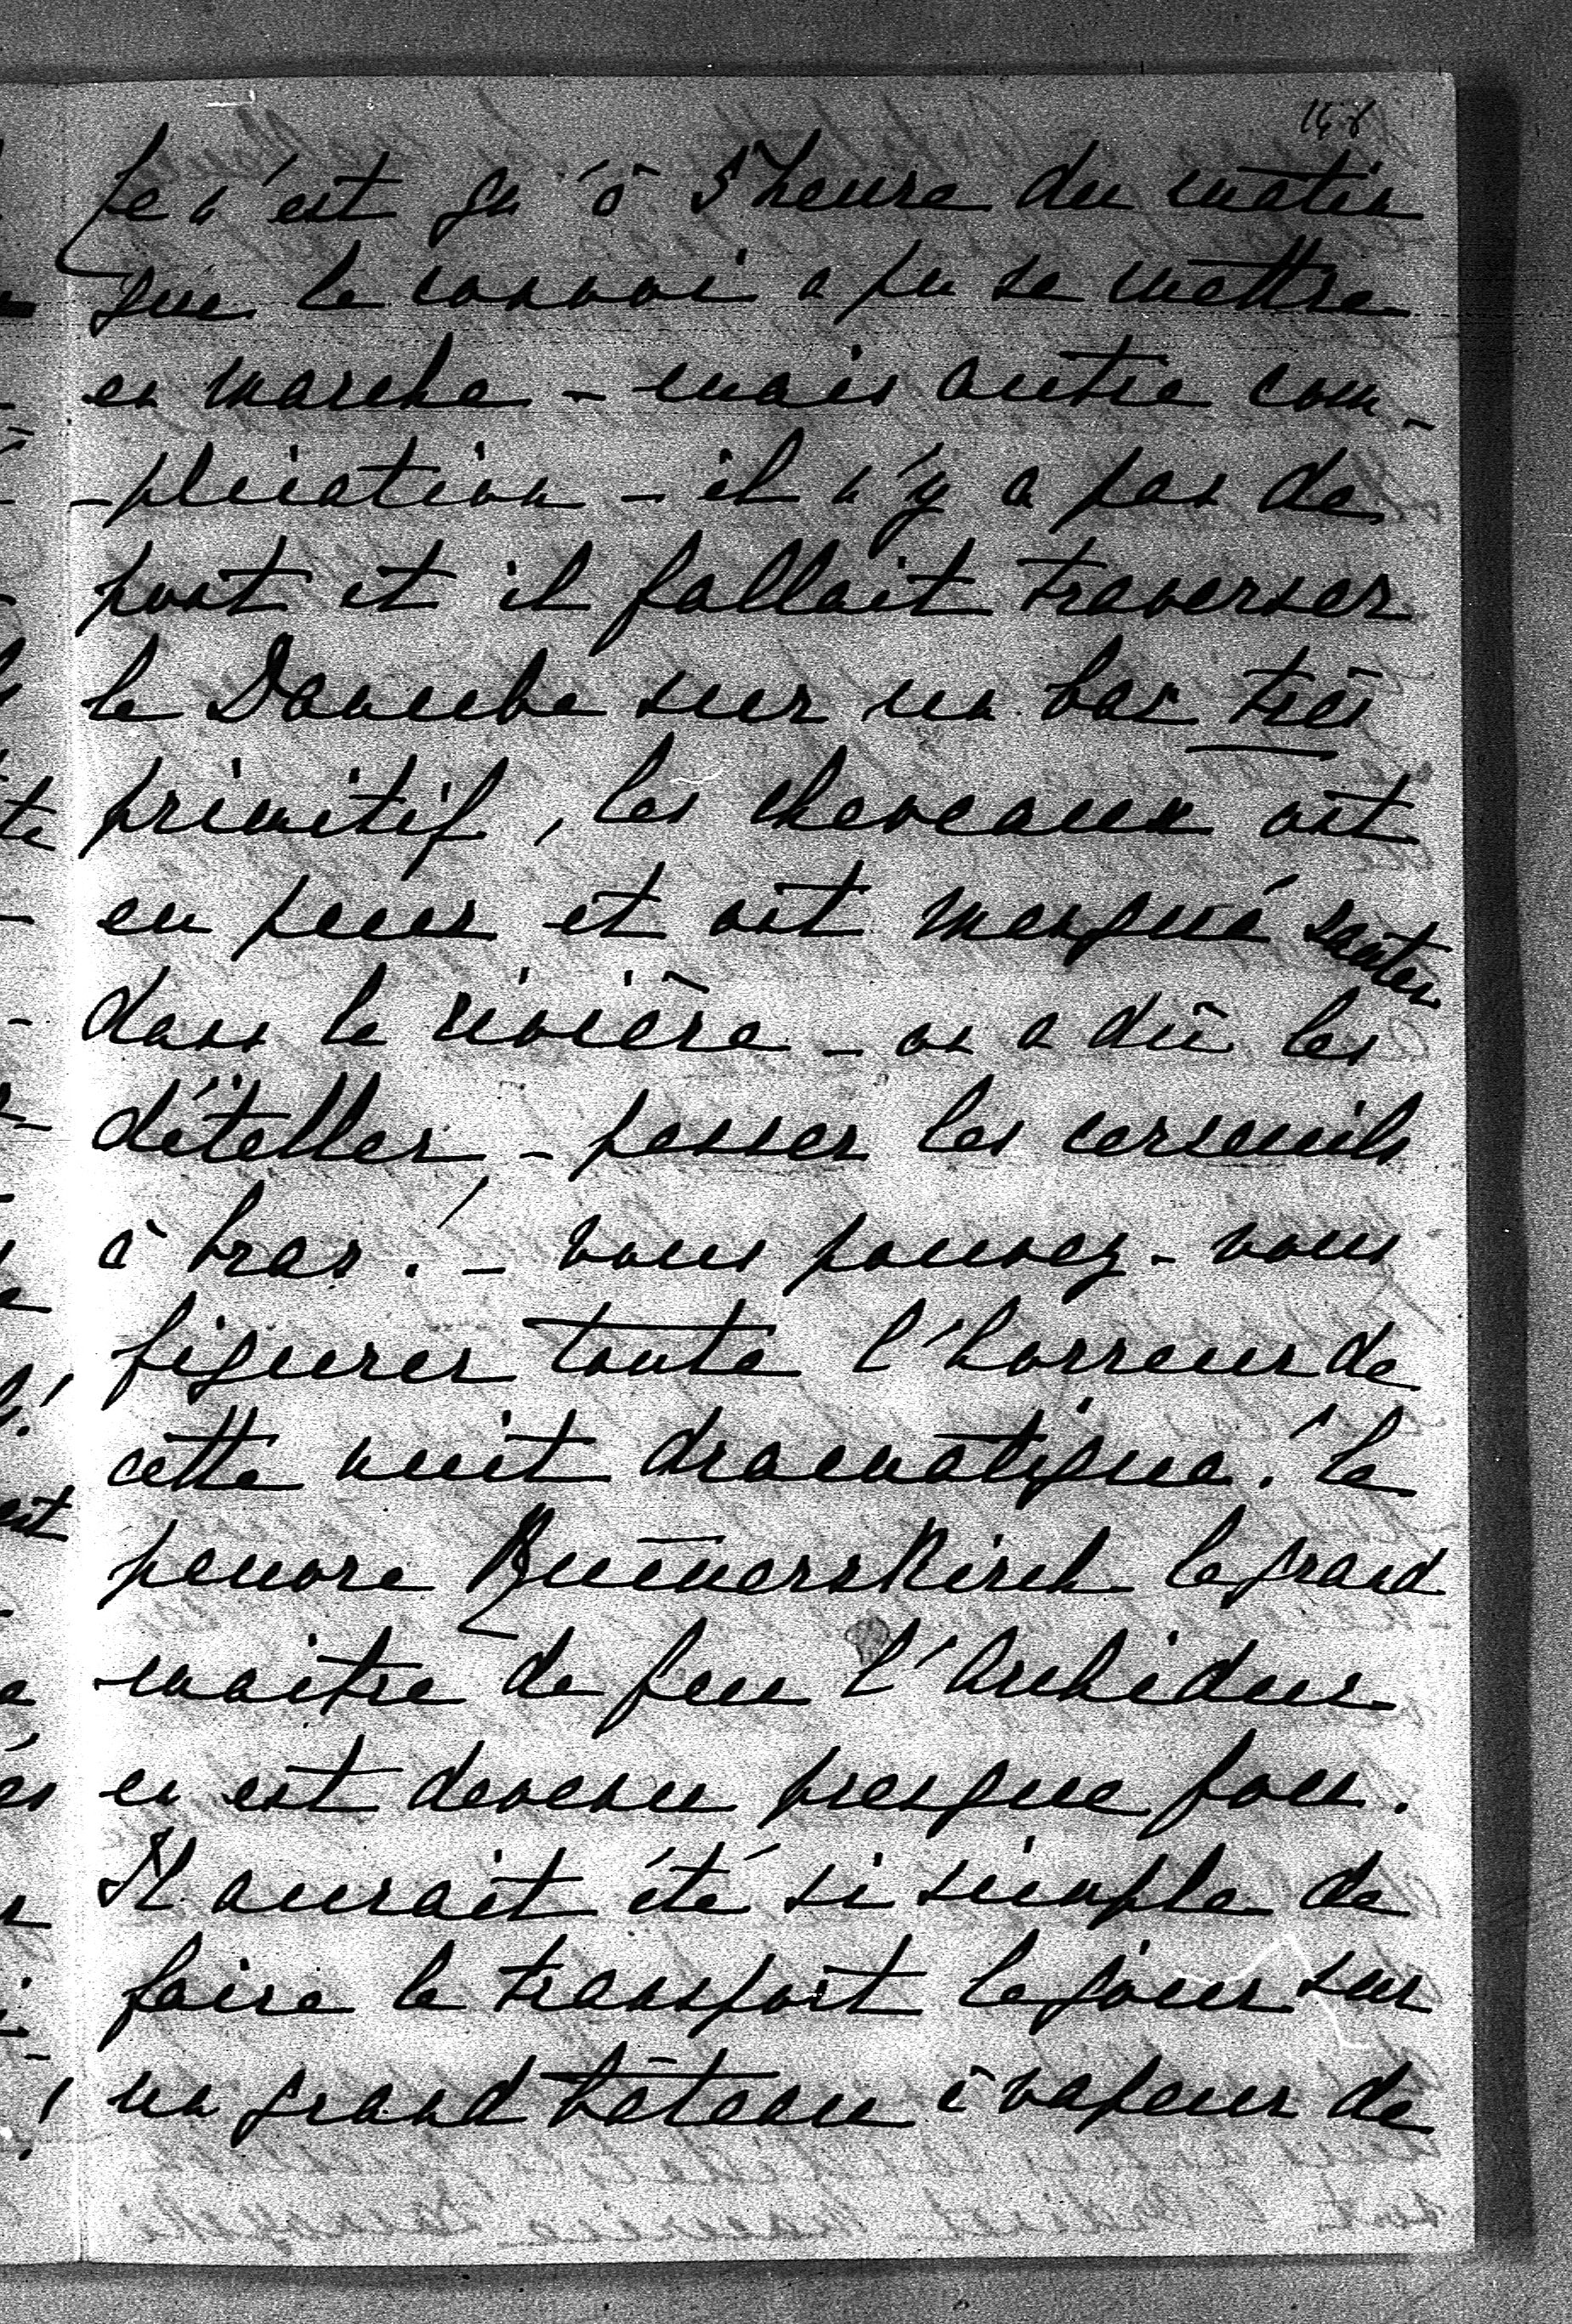 Ce n'est qu'à 5 heure du matin
que le convoi a pu se mettre
en marche - mais autre com-
-plication - il n'y a pas de
pont et il fallait traverser
le Danube sur un bac très
primitif, les cheveaux ont
eu peur et ont manqué sauter
dans la rivière - on a dû les
dételler - passer les cerceuils
à bras! - vous pouvez-vous
figurer toute l'horreur de
cette nuit dramatique! le
pauvre Rumerskirch le grand
maitre de feu l'Archiduc
en est devenu presque fou.
Il aurait été si simple de
faire le transport le jour sur
un grand bâteau à vapeur de